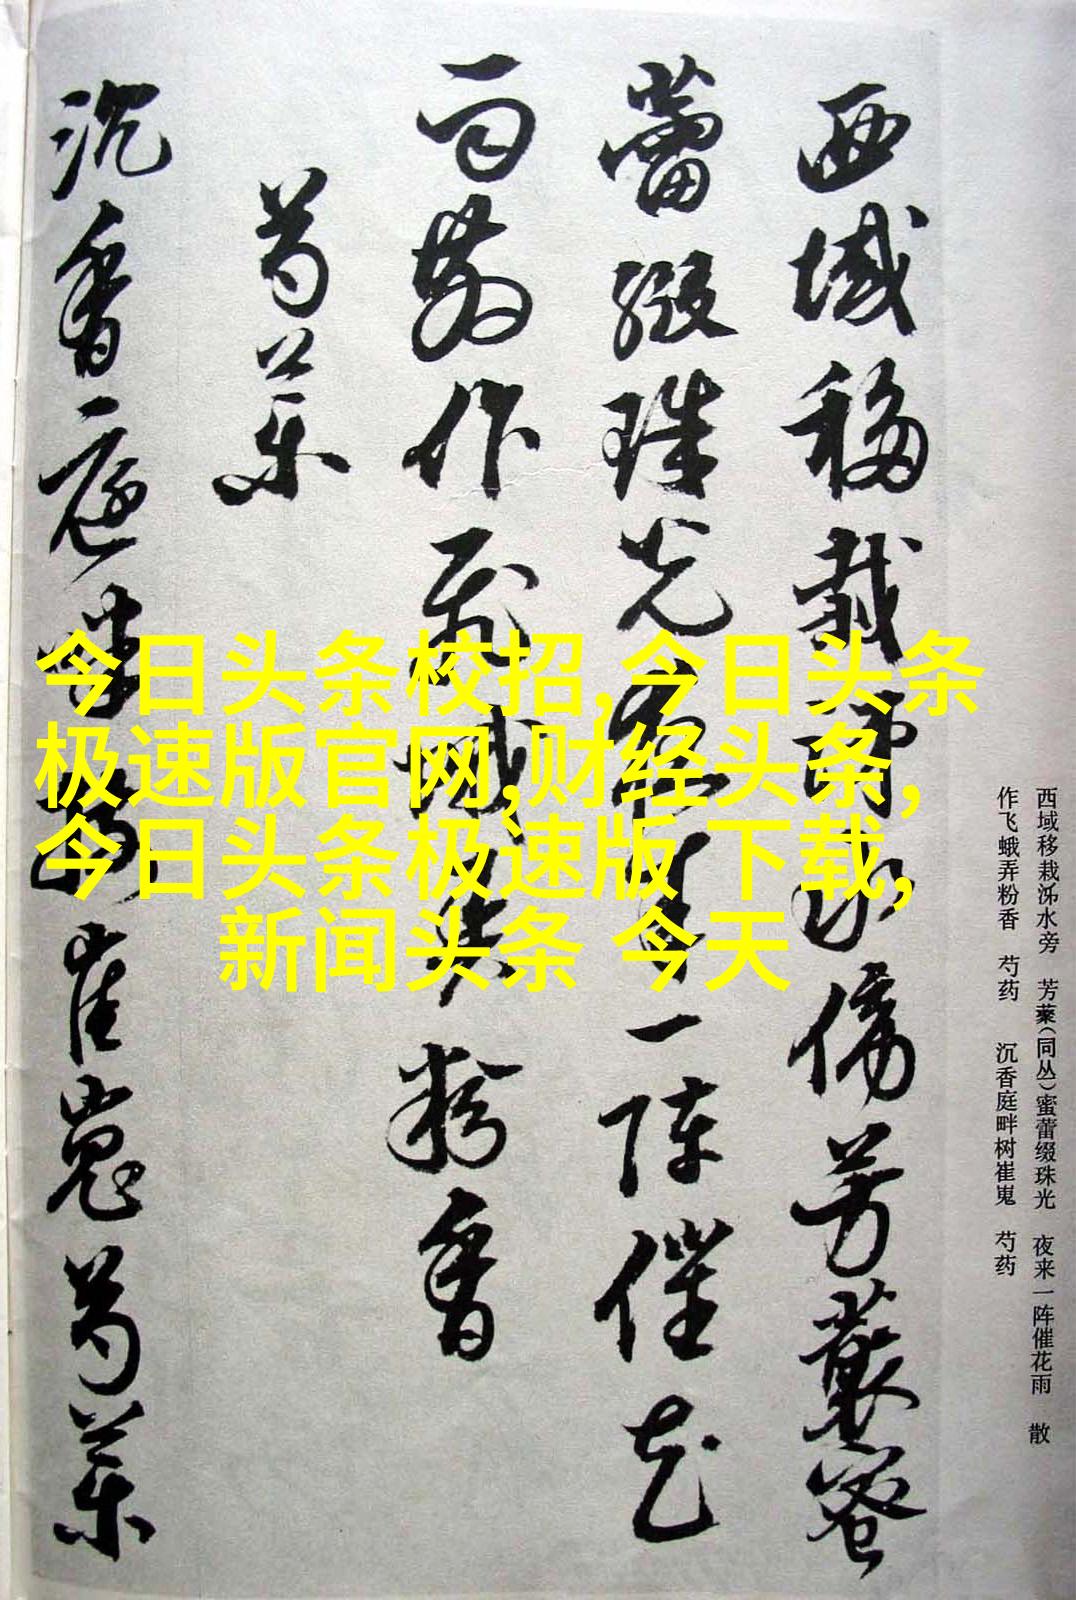 西域移栽泲水傍芳藂蜜
蕾缀珠光夜来一阵催花
雨散作飛蛾弄粉香
芍药
沉香庭畔樹崔嵬芍药
西域移栽泲水旁 芳藂(同丛)蜜蕾缀珠光 夜来一阵催花雨 散
作飞蛾弄粉香 芍药 沉香庭畔树崔嵬 芍药
今日头条校招,今日头条
极速版官网,财经头条,
今日头条极速版 下载,
新闻头条 今天